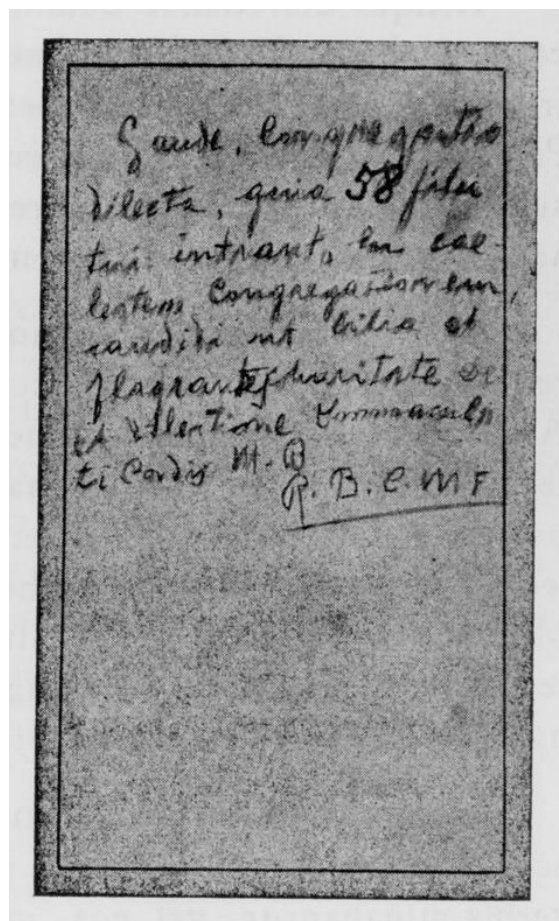 Gaude, Congregatio
dilecta, quia 58 filii
tui intrant, in coe-
lestem Congregationem,
candidi ut lilia et
flagrantes charitate De
et dilectione Immacula
ti Cordis M. B
R. B. C. M F